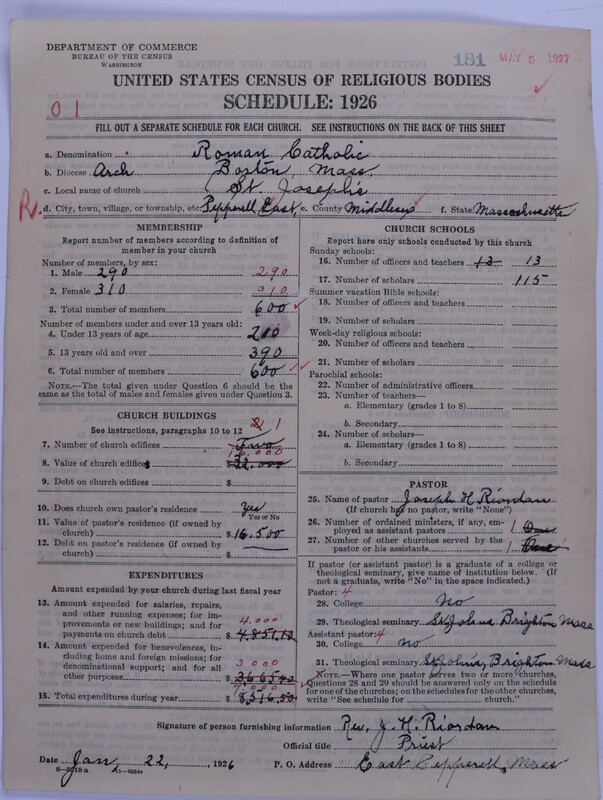 DEPARTMENT OF COMMERCE
BUREAU OF THE CENSUS
WASHINGTON
181 MAY 5 1927
UNITED STATES CENSUS OF RELIGIOUS BODIES
SCHEDULE: 1926
0 1
FILL OUT A SEPARATE SCHEDULE FOR EACH CHURCH. SEE INSTRUCTIONS ON THE BACK OF THIS SHEET
a. Denomination Roman Catholic
b. Diocese Arch Boston, Mass
c. Local name of church St. Joseph's
R. d. City, town, village, or township, etc. Pepperell East, e. County Middlesex f. State Massachusetts
MEMBERSHIP
Report number of members according to definition of
member in your church
Number of members, by sex:
1. Male 290 290
2. Female 310 310
3. Total number of members 600
Number of members under and over 13 years old:
4. Under 13 years of age 210
5. 13 years old and over 390
6. Total number of members 600
NOTE.—The total given under Question 6 should be
same as the total of males and females given under Question 3.
CHURCH BUILDINGS
See instructions, paragraphs 10 to 12 2 1
7. Number of church edifices Two
8. Value of church edifices $
9. Debt on church edifices $
10. Does church own pastor's residence Yes
Yes or No
11. Value of pastor's residence (if owned by
church) $ 16,500
12. Debt on pastor's residence (if owned by
church) $
EXPENDITURES
Amount expended by your church during last fiscal year
13. Amount expended for salaries, repairs,
and other running expenses; for im-
provements or new buildings; and for 4,000
payments on church debt $ 4,851.12
14. Amount expended for benevolences, in-
cluding home and foreign missions; for
denominational support; and for all 3000
other purposes $
15. Total expenditures during year 7,000 $ 8,516.50
CHURCH SCHOOLS
Report here only schools conducted by this church
Sunday schools:
16. Number of officers and teachers 13 13
17. Number of scholars 115
Summer vacation Bible schools:
18. Number of officers and teachers
19. Number of scholars
Week-day religious schools:
20. Number of officers and teachers
21. Number of scholars
Parochial schools:
22. Number of administrative officers
23. Number of teachers—
a. Elementary (grades 1 to 8)
b. Secondary
24. Number of scholars—
a. Elementary (grades 1 to 8)
b. Secondary
PASTOR
25. Name of pastor Joseph H Riordan
(If church has no pastor, write "None")
26. Number of ordained ministers, if any, em-
ployed as assistant pastors 1 One
27. Number of other churches served by the
pastor or his assistants 1 One
If pastor (or assistant pastor) is a graduate of a college or
theological seminary, give name of institution below. (If
not a graduate, write "No" in the space indicated.)
Pastor: 4
28. College No
29. Theological seminary St Johns, Brighton Mass
Assistant pastor: 4
30. College no
31. Theological seminary St Johns, Brighton Mass
NOTE.—Where one pastor serves two or more churches,
Questions 28 and 29 should be answered only on the schedule
for one of the churches; on the schedules for the other churches,
write "See schedule for church."
Signature of person furnishing information Rev. J. H. Riordan
Official title Priest
Date Jan 22, , 1926 P. O. Address East Pepperell, Mass